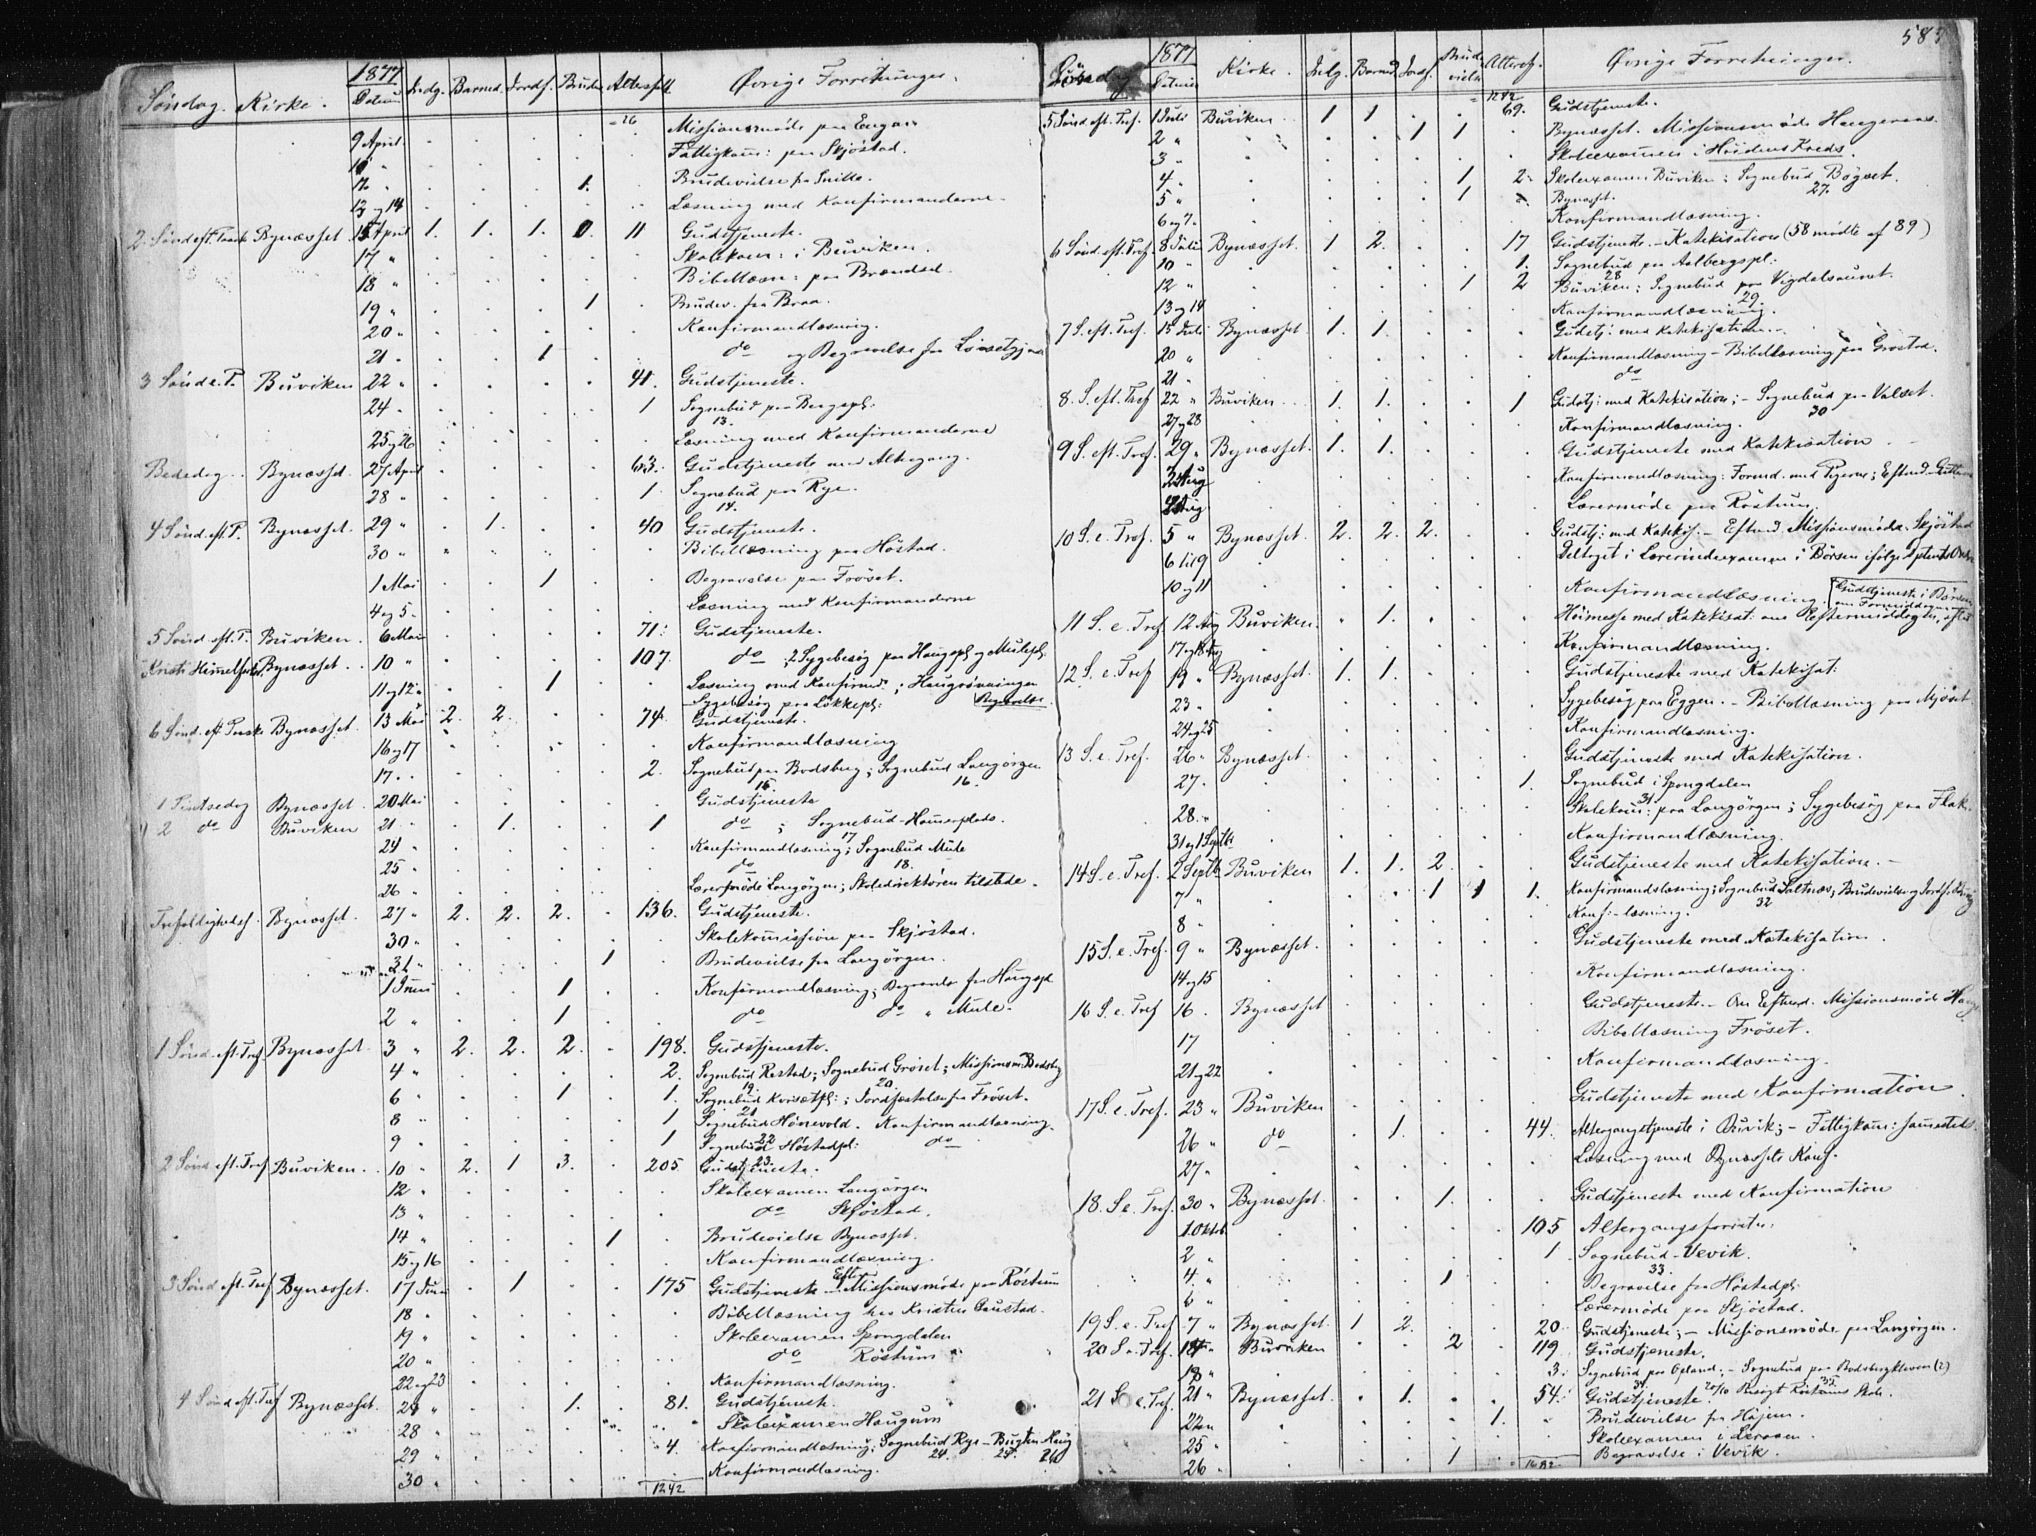 Søndag. Kirke. 1877 Datum Indg. Barned. Jordf. Brudev. Altersf. Øvrige Forretninger.
9 April Missionsmøde paa Engan
10 " Fattigkom: paa Skjøstad.
12 " 1. Brudevielse fra Snilla.
13 og 14 Læsning med Konfirmanderne.
2. Sønd. eft. Paask. Bynæsset 15 April 1. 1. 1. 0. 11 Gudstjeneste.
17 " Skolekom: i Buviken.
18 " Bibellæsn: paa Brændsel.
19 " 1 Brudev. fra Braa.
20 " Konfirmandlæsning.
21 " 1 do og Begravelse fra
3 Sønd e. P. Buviken 22 " 41. Gudstjeneste.
24 " 1 Sognebud paa Bergspl:
13.
25 og 26 Læsning med Konfirmanderne
Bededag Bynæsset 27 April 63. Gudstjeneste med Altergang.
28 " 1. Sognebud paa Rye.
14.
4 Sønd. eft. P. Bynæsset. 29 " 1. 40 Gudstjeneste.
30 " Bibellæsning paa Høstad.
1 Mai 1 Begravelse paa Frøset.
4 og 5. Læsning med Konfirmanderne
5 Sønd. eft. P. Buviken. 6 Mai 71. Gudstjeneste.
Kristi Himmelfartsd. Bynæsset. 10 " 107. do ; 2 Sygebesøg paa Haugspl. og Mulespl.
11 og 12 " 1 Læsning med Konfirmd.; Haugrønningen Begravelse
Sygebesøg paa Løkkepl:
6 Sønd. eft Paask Bynæsset. 13 Mai 2. 2. 74. Gudstjeneste.
16 og 17 Konfirmandlæsning
17 " 2. Sognebud paa Bodsberg; Sognebud Langørgen
15. 16.
1 Pintsedag Bynæsset 20 Mai Gudstjeneste
2 do Buviken 21 " 1. 1 do ; Sognebud Hamerplads.
17
24 " Konfirmandlæsning; Sognebud Mule
25 " do 18.
26 " Lærermøde Langørgen; Skoledirektøren tilstede.
Trefoldighedsf. Bynæsset. 27 " 2. 2. 2. 136. Gudstjeneste.
30 " Skolekommission paa Skjøstad.
31 " 1 Brudevielse fra Langørgen.
1 Juni 1 Konfirmandlæsning; Begravelse fra Haugspl
2 " 1 do do " Mule.
1 Sønd. eft. Tref. Bynæsset. 3 " 2. 2. 2. 198. Gudstjeneste.
4 " 2. Sognebud Restad; Sognebud Groset; Missionsm Bodsberg
19. 20.
6 " 1 1. Sognebud Kvisætpl:; Jordfæstelse fra Frøset.
21
8 " 1 Sognebud Hønevold. Konfirmandlæsning.
22
9 " 1 Sognebud Høstadpl: do
23.
2 Sønd. eft. Tref Buviken. 10 " 2. 1 3. 205 Gudstjeneste.
12 " Skoleexamen Langørgen
13 " do Skjøstad.
14 " 1 Brudevielse Bynæsset.
15 og 16 Konfirmandlæsning
3 Sønd eft. Tref Bynæsset. 17 Juni 1 175 Gudstjeneste – Efterm. Missionsmøde paa Røstum
18 " Bibellæsning hos Kristen Gaustad.
19 " Skoleexamen Spongdalen
20 " do Røstum
22 og 23 Konfirmandlæsning.
4 Sønd eft. Tref Bynæsset. 24 " 1. 81. Gudstjeneste.
28 " Skoleexamen Haugum
29 " 4. Konfirmandlæsning; Sognebud Rye – Bugten – Haug
24. 25. 26
30 " Konfirmandlæsning.
1242

585
Søndag 1877 Datum Kirke. Indg. Barned. Jordf. Brudeviels Altersf. Øvrige Forretninger.
1242
5 Sønd. eft. Tref. 1 Juli Buviken 1 1 69. Gudstjeneste.
2 " 1 1 Bynæsset. Missionsmøde Haugeraas
3 " Skoleexamen i Høidens Kreds.
4 " 1 2. Skoleexamen Buviken; Sognebud Bøgset.
27.
5 " 1 Bynæsset.
6 og 7. Konfirmandlæsning.
6 Sønd. eft. Tref. 8 Juli Bynæsset. 1 2. 17 Gudstjeneste. – Katekisation (58 mødte af 89)
10 " 1. Sognebud paa Aalbergspl:
28
12 " 1 2 Buviken: Sognebud paa Vigdalsauret.
29.
13 og 14 Konfirmandlæsning.
7 S. eft. Tref. 15 Juli Bynæsset. 1. 1. Gudstj. med Katekisation.
20 " Konfirmandlæsning – Bibellæsning paa Grostad.
21 " do
8. S. eft. Tref 22 " Buviken 1. 1. 1 Gudstj: med Katekisation; – Sognebud paa Valset.
30
27 og 28 Konfirmandlæsning.
9 S. eft. Tref. 29 " Bynæsset. 1. 1. Gudstjeneste med Katekisation
Aug Konfirmandlæsning: Formd. med Pigerne; Eftmd. – Gutterne
Aug Lærermøde paa Røstum.
10 S. e. Tref. 5 " Bynæsset. 2. 2. 2. Gudstj: med Katekis. – Eftmd. Missionsmøde Skjøstad
6 til 9 Deltaget i Lærerindeexamen i Børsen ifølge
10 og 11 Konfirmandlæsning. Gudstjeneste i Børsen om Formiddagen
11 S. e. Tref. 12 Aug Buviken. 1. Høimesse med Katekisat: om Eftermiddagen,
17 og 18 Aug Konfirmandlæsning.
12 S. e. Tref 19 " Bynæsset. 1. 1. Gudstjeneste med Katekisat:
23 " Sygebesøg paa Eggen. – Bibellæsning paa Mjøset
24 og 25 Konfirmandlæsning.
13 S. e. Tref. 26 " Bynæsset. Gudstjeneste med Katekisation.
27 " 1. Sognebud i Spongdalen
31
28. " Skolekom: paa Langørgen; Sygebesøg paa Flak.
31 og 1 Septb. Konfirmandlæsning.
14 S. e. Tref. 2 Septb Buviken 1. 1. 2. Gudstjeneste med Katekisation. –
7 " 1 1 1. Konfirmandslæsning; Sognebud Saltnæs; Brudevielse og Jordf.
32
8 " Konf: læsning.
15 S. e. Tref. 9 " Bynæsset. Gudstjeneste med Katekisation.
14 og 15 Konfirmandlæsning.
16 S. e. Tref 16. Bynæsset Gudstjeneste. – Om Eftmd. Missionsmøde
17 Bibellæsning Frøset.
21 og 22 Konfirmandlæsning.
17 S. e. Tref. 23 " Buviken Gudstjeneste med Konfirmation
26 " do 1. 44. Altergangstjeneste i Buvik; – Fattigkom: sammesteds.
27 " Læsning med Bynæssets Konf.
18. S. e. Tref. 30 " Bynæsset. 1. Gudstjeneste med Konfirmation
1 Oktob. 105 Altergangsforretn:
2 " 1 Sognebud – Vevik.
33.
4. " 1 Begravelse fra Høstadpl.
6 " Lærermøde paa Skjøstad.
19 S. e. Tref 7 " Bynæsset. 1 2. 20. Gudstjeneste; – Missionsmøde paa Langørgen.
20 S. e. Tref. 14 " Buviken 2 119 Gudstjeneste.
18 " 3. Sognebud paa Opland, – Sognebud paa Bodsbergkleven (2)
34. 35
21 S. e. Tref. 21 " Bynæsset. 1. 54. Gudstjeneste. 20/10 Besøgt Røstums Skole.
22 " 1. Brudevielse fra Højem.
25 " Skoleexamen i Leraaen.
26 " 1 Begravelse i Vevik.
1682